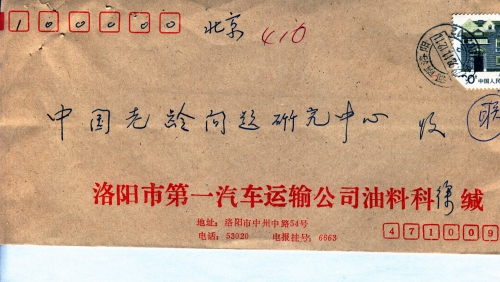 100000
北京
410
中国老龄问题研究中心 收
联
洛阳市第一汽车运输公司油料科徐缄
地址：洛阳市中州中路54号
电话：53020 电报挂号：6663
471009
中国人民